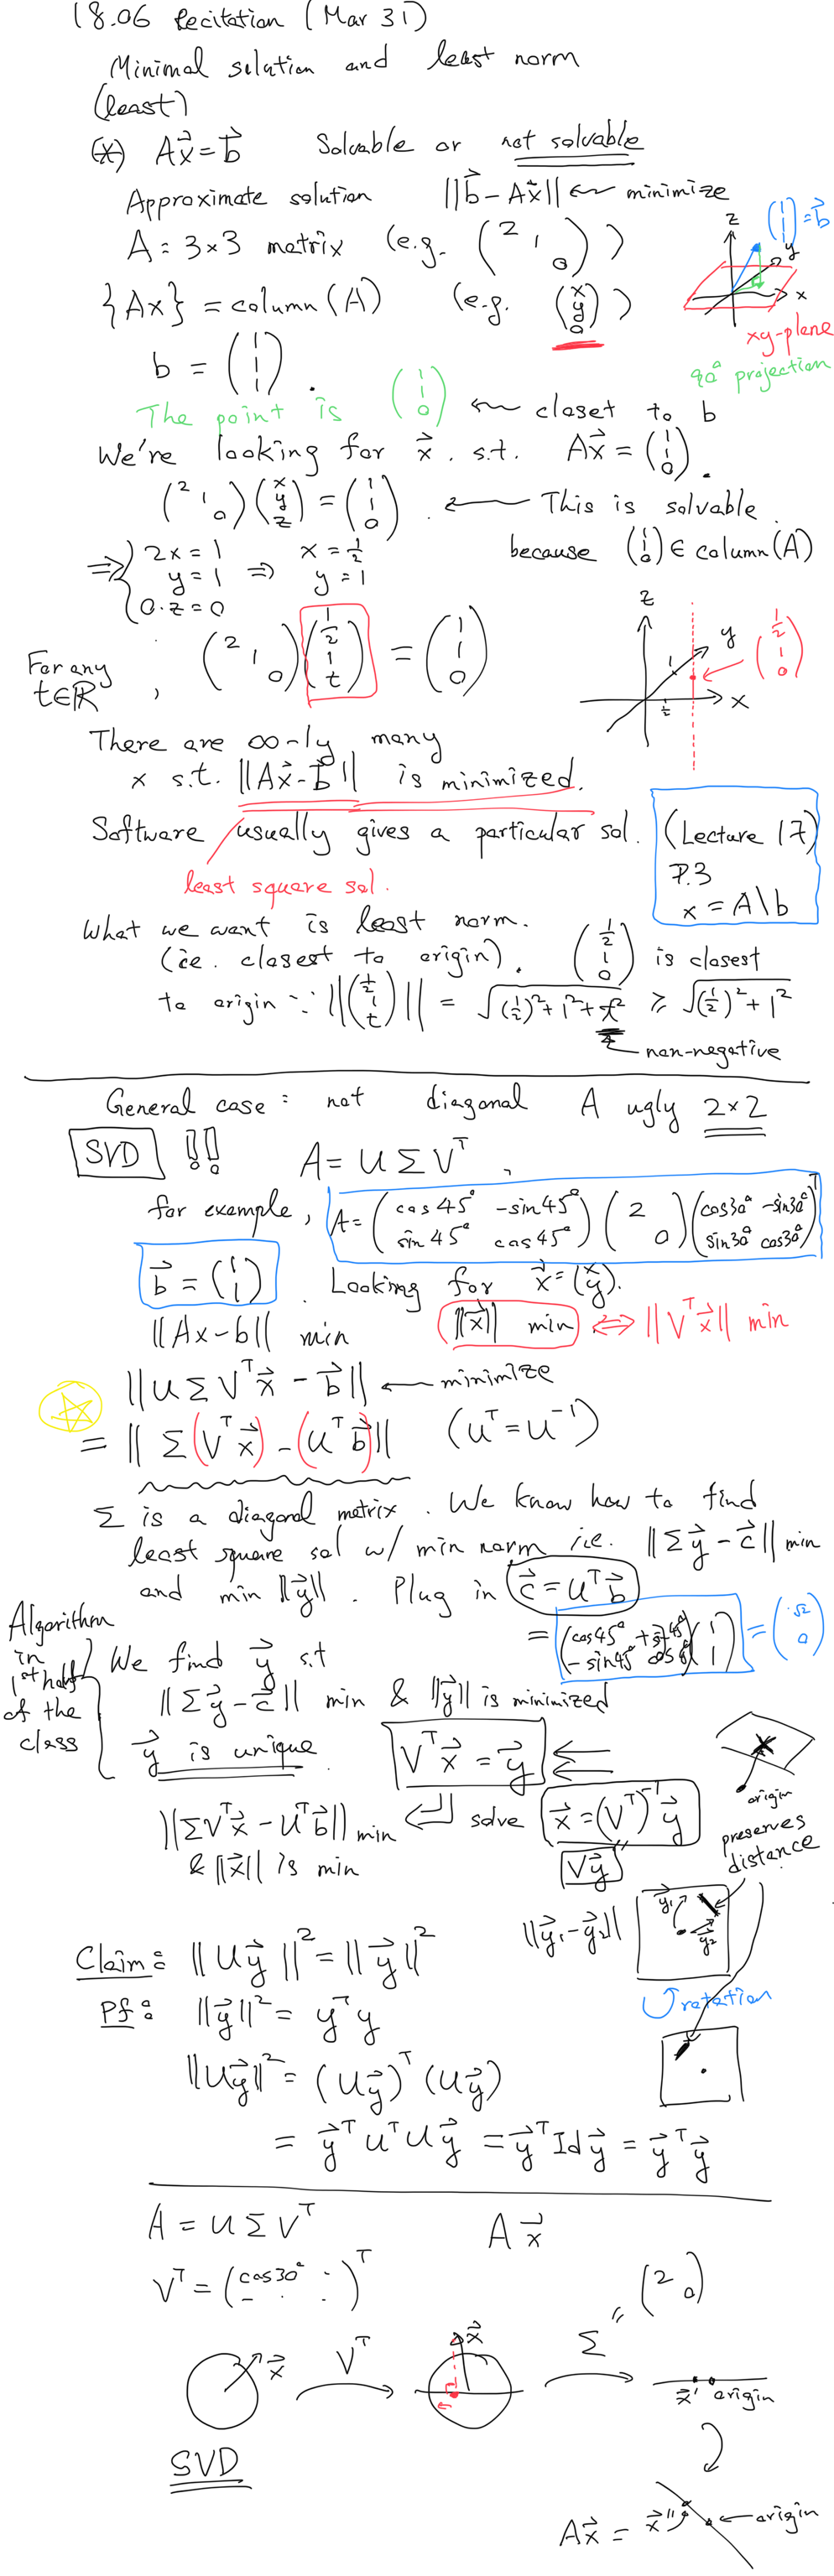 18.06 Recitation (Mar 31)
Minimal solution and least norm
(least)
(*) Ax⃗ = b⃗ Solvable or not solvable
Approximate solution ||b⃗ - Ax⃗|| ← minimize
A = 3×3 matrix (e.g. (2 1 0))
{Ax} = column(A) (e.g. (x y 0))
b = (1 1 1).
z
(1 1 1) = b⃗
y
x
xy-plane
90° projection
The point is (1 1 0) ← closet to b
We're looking for x⃗. s.t. Ax⃗ = (1 1 0).
(2 1 0)(x y z) = (1 1 0). ← This is solvable.
because (1 1 0) ∈ column(A)
⇒ { 2x = 1 ⇒ x = 1/2
y = 1 y = 1
0·z = 0
For any t∈ℝ, (2 1 0)(1/2 1 t) = (1 1 0)
z
y
(1/2 1 0)
1
1/2
x
There are ∞-ly many
x s.t. ||Ax⃗ - b⃗|| is minimized.
Software usually gives a particular sol.
least square sol.
(Lecture 17)
P.3
x = A\b
What we want is least norm.
(ie. closest to origin). (1/2 1 0) is closest
to origin ∵ ||(1/2 1 t)|| = √((1/2)²+1²+t²) ≥ √((1/2)²+1²)
non-negative
General case: not diagonal A ugly 2×2
SVD !! A = UΣVᵀ,
for example, A = (cos45° -sin45° sin45° cos45°)(2 0)(cos30° -sin30° sin30° cos30°)ᵀ
b⃗ = (1 1). Looking for x⃗ = (x y).
||Ax-b|| min ||x⃗|| min ⇔ ||Vᵀx⃗|| min
||UΣVᵀx⃗ - b⃗|| ← minimize
= ||Σ(Vᵀx⃗) - (Uᵀb⃗)|| (Uᵀ = U⁻¹)
Σ is a diagonal matrix. We know how to find
least square sol w/ min norm ie. ||Σy⃗ - c⃗|| min
and min ||y⃗||. Plug in c⃗ = Uᵀb⃗
= (cos45° +sin45° -sin45° cos45°)(1 1) = (√2 0)
Algorithm in 1st half of the class
We find y⃗ s.t
||Σy⃗ - c⃗|| min & ||y⃗|| is minimized
y⃗ is unique. Vᵀx⃗ = y⃗
origin
||ΣVᵀx⃗ - Uᵀb⃗|| min ⇐ solve x⃗ = (Vᵀ)⁻¹y⃗
& ||x⃗|| is min Vy⃗
preserves distance
||y⃗₁ - y⃗₂|| y⃗₁ y⃗₂
Claim: ||Uy⃗||² = ||y⃗||²
rotation
Pf: ||y⃗||² = yᵀy
||Uy⃗||² = (Uy⃗)ᵀ(Uy⃗)
= y⃗ᵀUᵀUy⃗ = y⃗ᵀIdy⃗ = y⃗ᵀy⃗
A = UΣVᵀ Ax⃗
Vᵀ = (cos30° ...)ᵀ (2 0)
x⃗ Vᵀ x⃗ Σ
x⃗' origin
SVD
Ax⃗ = x⃗'' ← origin